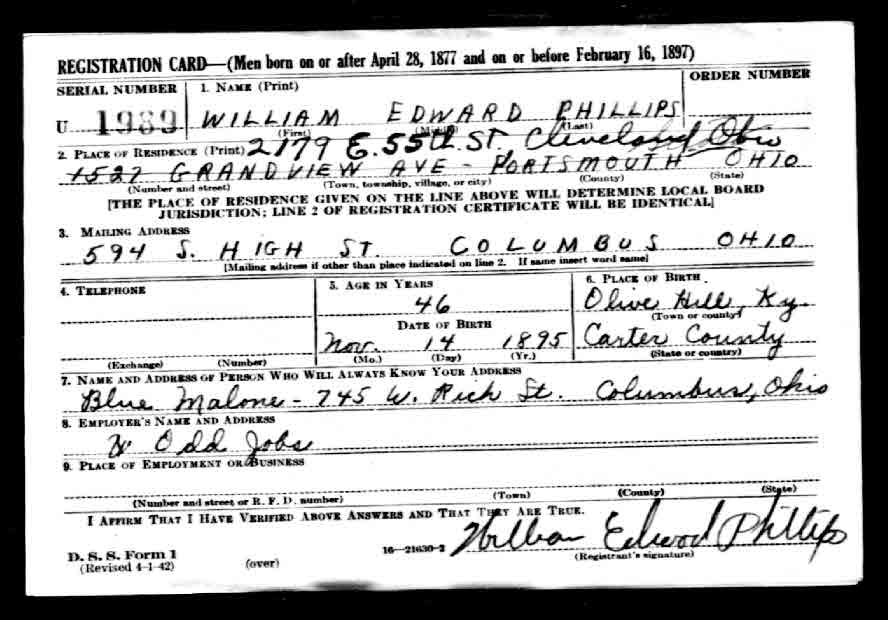 REGISTRATION CARD—(Men born on or after April 28, 1877 and on or before February 16, 1897)
SERIAL NUMBER 1. NAME (Print) ORDER NUMBER
U 1989 WILLIAM EDWARD PHILLIPS
(First) (Middle) (Last)
2179 E. 55th. ST. Cleveland, Ohio
2. PLACE OF RESIDENCE (Print)
1527 GRANDVIEW AVE - PORTSMOUTH OHIO
(Number and street) (Town, township, village, or city) (County) (State)
[THE PLACE OF RESIDENCE GIVEN ON THE LINE ABOVE WILL DETERMINE LOCAL BOARD
JURISDICTION; LINE 2 OF REGISTRATION CERTIFICATE WILL BE IDENTICAL]
3. MAILING ADDRESS
594 S. HIGH ST. COLUMBUS OHIO
[Mailing address if other than place indicated on line 2. If same insert word same]
4. TELEPHONE 5. AGE IN YEARS 6. PLACE OF BIRTH
46 Olive Hill, Ky.
(Town or county)
DATE OF BIRTH
Nov. 14 1895 Carter County
(Exchange) (Number) (Mo.) (Day) (Yr.) (State or country)
7. NAME AND ADDRESS OF PERSON WHO WILL ALWAYS KNOW YOUR ADDRESS
Blue Malone - 745 W. Rich St. Columbus, Ohio
8. EMPLOYER'S NAME AND ADDRESS
Odd Jobs
9. PLACE OF EMPLOYMENT OR BUSINESS
(Number and street or R. F. D. number) (Town) (County) (State)
I AFFIRM THAT I HAVE VERIFIED ABOVE ANSWERS AND THAT THEY ARE TRUE.
D. S. S. Form 1 16—21630-2 William Edward Phillips
(Revised 4-1-42) (over) (Registrant's signature)